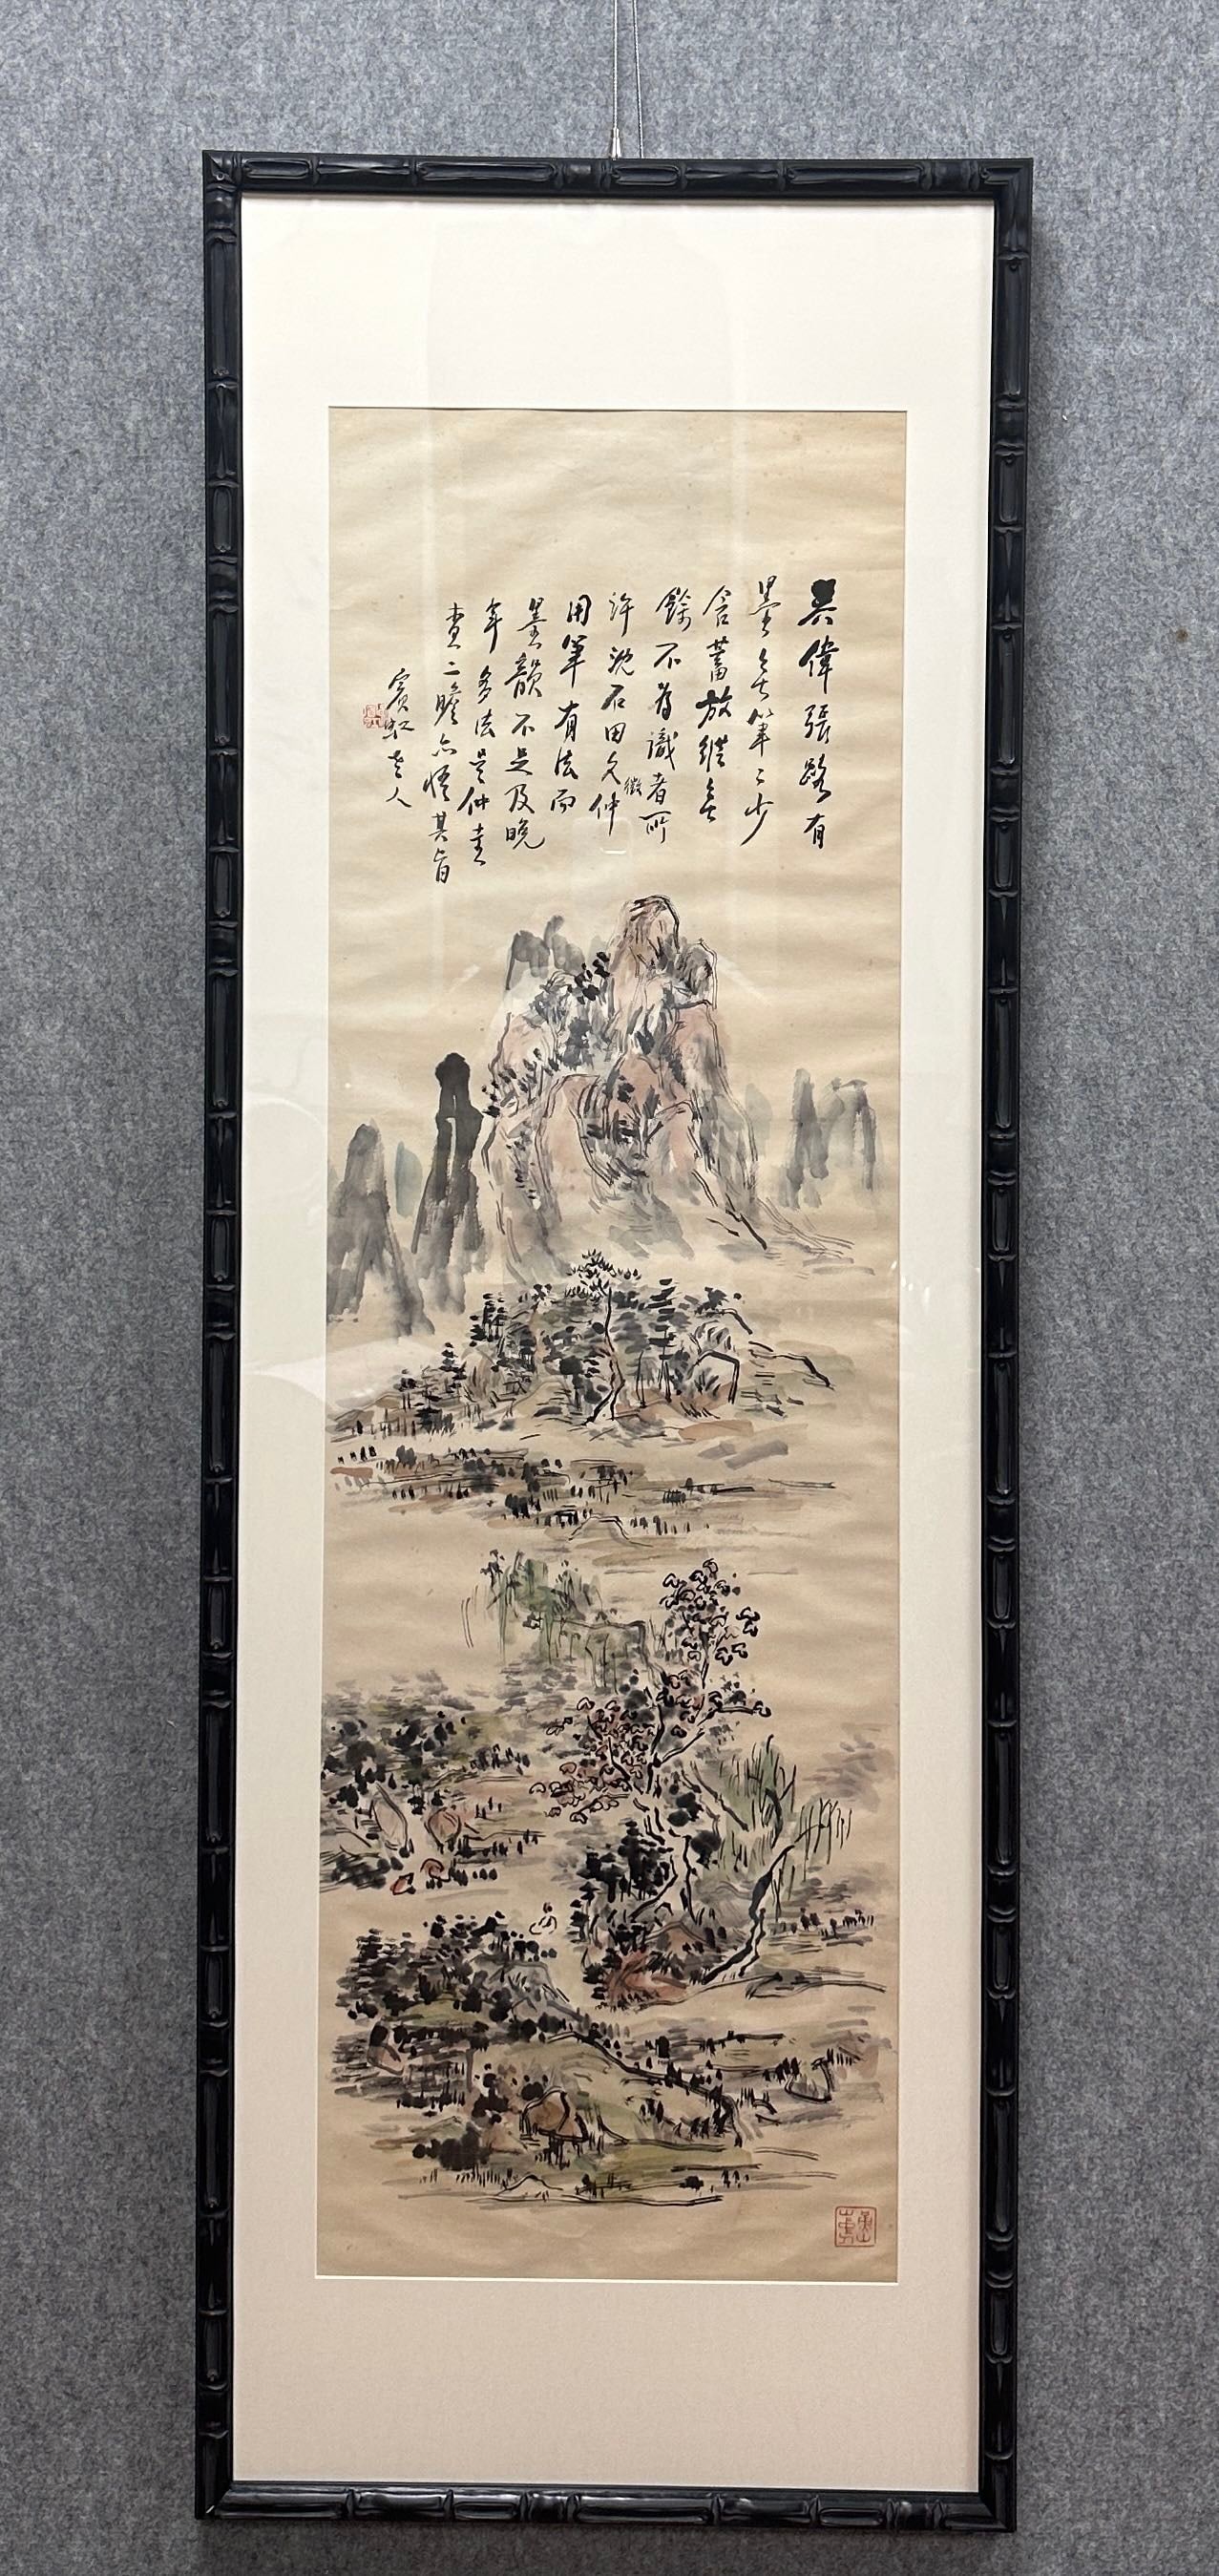 吳偉張路有
墨無筆筆少
含蓄放縱無
餘不為識者所
許沈石田文徵仲
用筆有法而
墨韻不足及晚
年多法吳仲圭
查二瞻亦悟其旨
賓虹老人